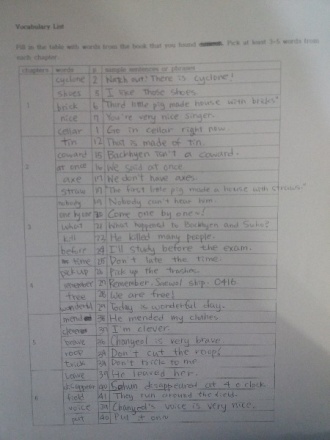 Vocabulary List
Fill in the table with words from the book that you found. Pick at least 3-5 words from
each chapter.
chapters words p sample sentences or phrases
cyclone 2 Watch out! There is cyclone!
shoes 8 I like those shoes.
1 brick 6 Third little pig made house with bricks.
nice 7 You're very nice singer.
cellar 8 Go in cellar right now.
tin 12 That is made of tin.
coward 15 Baekhyen isn't a coward.
2 at once 16 We said at once.
axe 17 We don't have axes.
straw 18 The first little pig made a house with straws.
nobody 19 Nobody can't have him.
one by one Come one by one!
3 what 21 What happened to Baekhyen and Suho?
kill He killed many people.
before I'll study before the exam.
time Don't late the time.
pick up Pick up the trashes.
4 remember 27 Remember. Sewol ship. 0416
free 28 We are free!
wonderful 29 Today is wonderful day.
He mended my clothes
clever I'm clever
5 brave Changyeol is very brave
rope Don't cut the rope!
trick Don't trick to me
He leaved her.
disappear 40 Sehun disappeared at 4 o'clock
6 field 41 They run around the field.
voice Changyeol's voice is very nice.
put Put it on